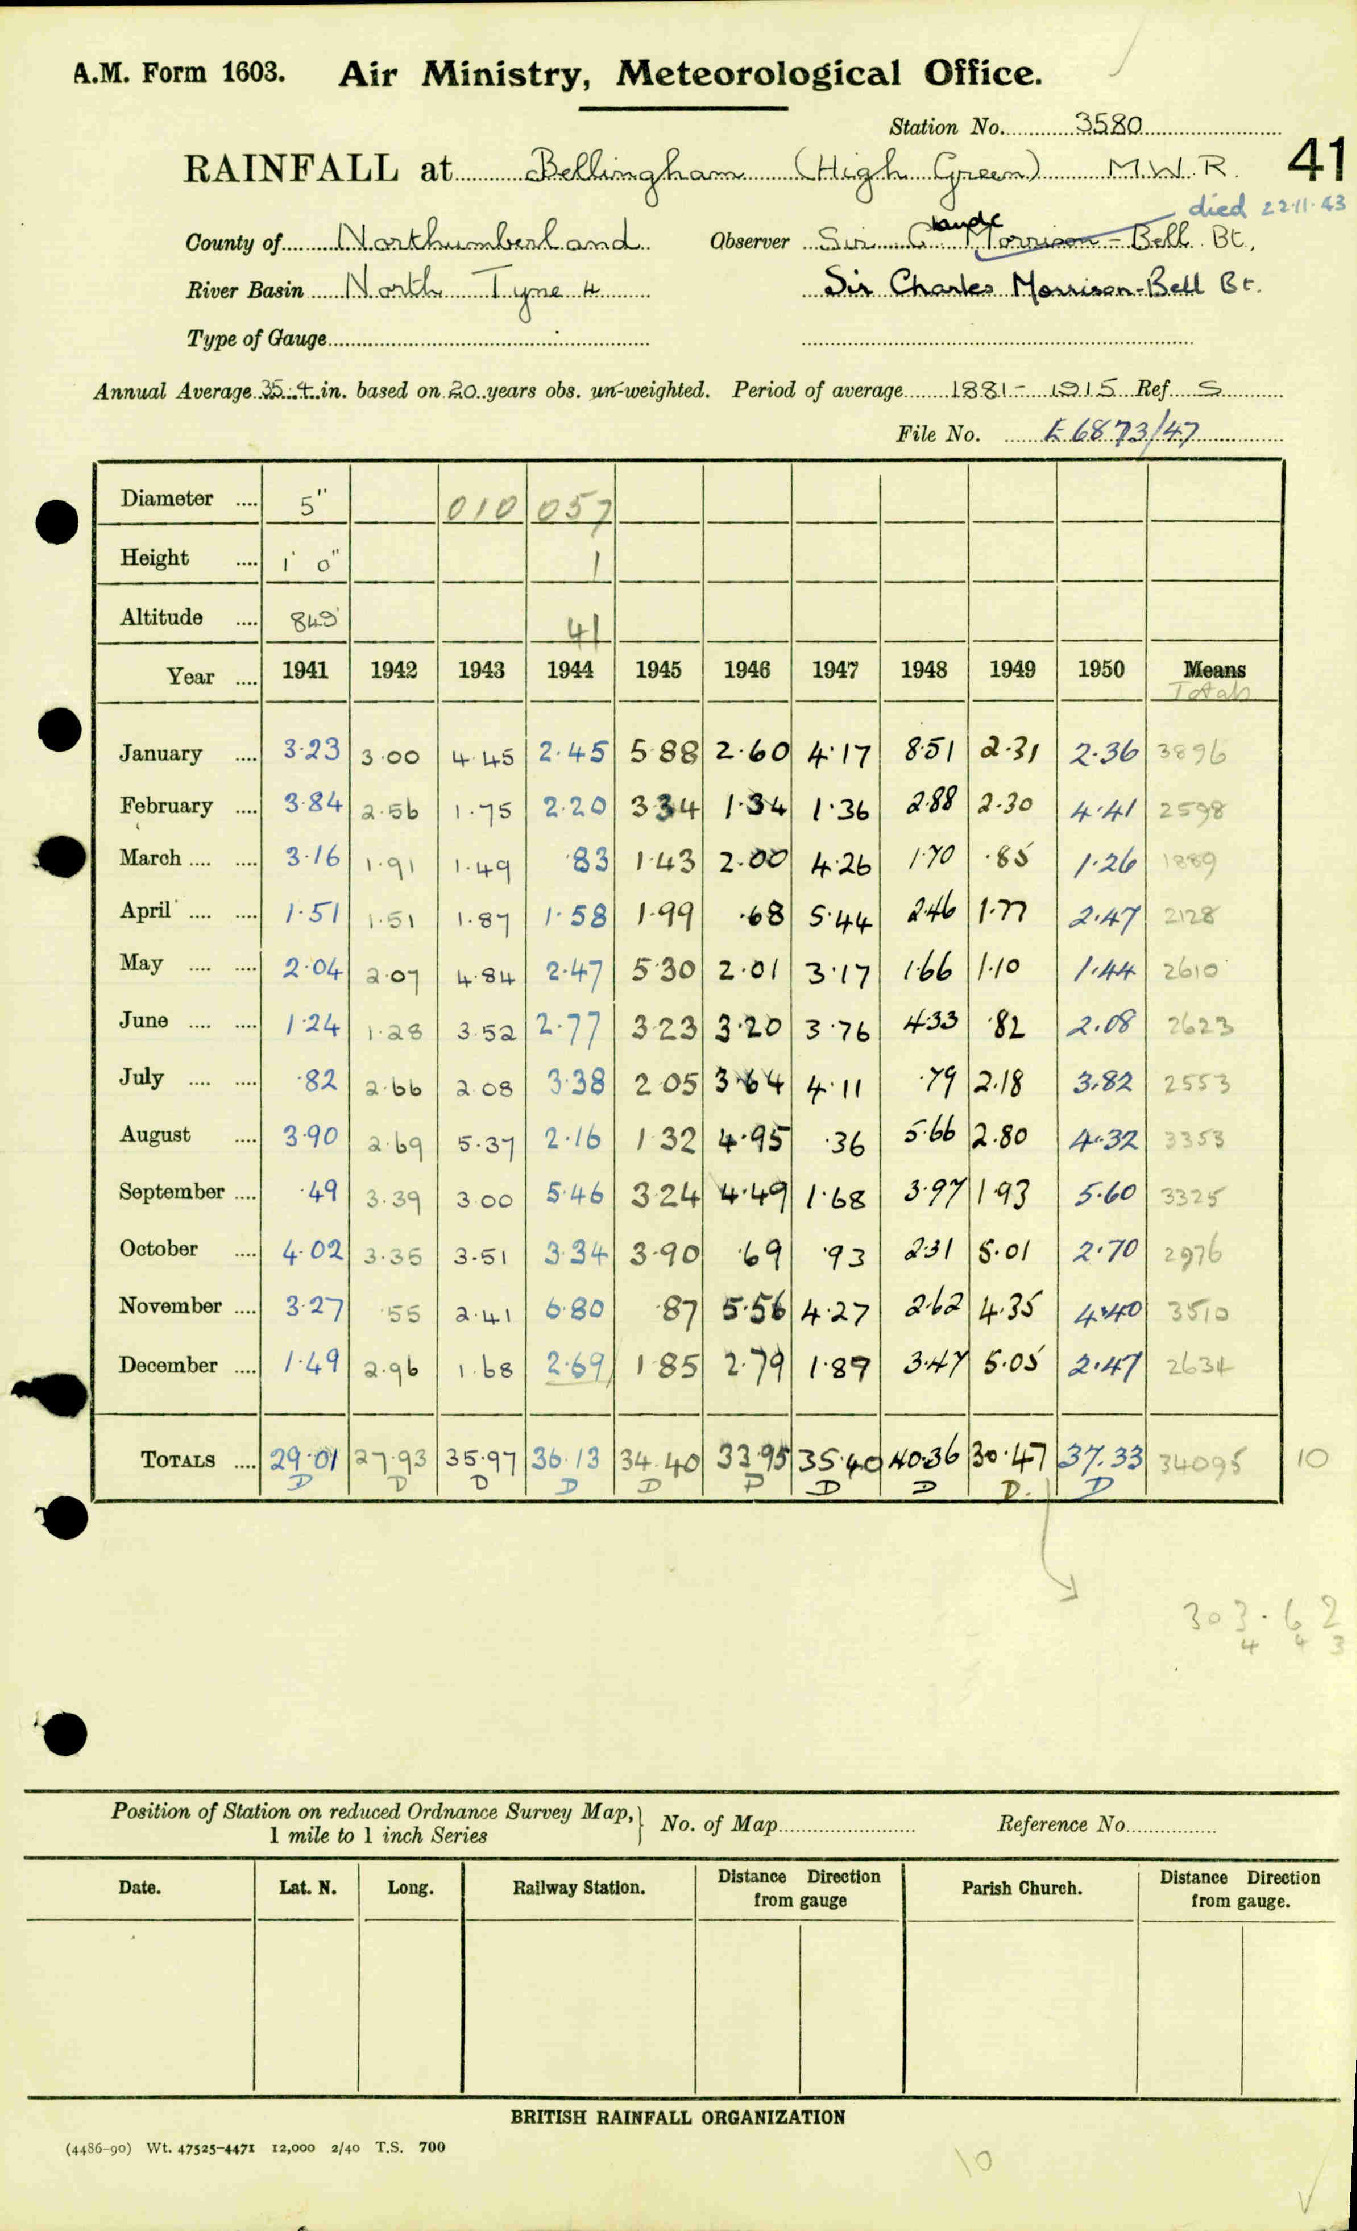 A.M. Form 1603. Air Ministry, Meteorological Office.
Station No. 3580
RAINFALL at Bellingham (High Green) M.W.R. 41
died 22.11.43
County of Northumberland Observer Sir Claude Morrison-Bell Bt,
River Basin North Tyne 4 Sir Charles Morrison-Bell Bt.
Type of Gauge
Annual Average 35.4 in. based on 20 years obs. un-weighted. Period of average 1881-1915 Ref S
File No. E6873/47
Diameter .... 5" 010 057
Height .... 1' 0" 1
Altitude .... 849' 41
Year .... 1941 1942 1943 1944 1945 1946 1947 1948 1949 1950 Means
Totals
January .... 3.23 3.00 4.45 2.45 5.88 2.60 4.17 8.51 2.31 2.36 3896
February .... 3.84 2.56 1.75 2.20 3.34 1.34 1.36 2.88 2.30 4.41 2598
March .... .... 3.16 1.91 1.49 .83 1.43 2.00 4.26 1.70 .85 1.26 1889
April .... .... 1.51 1.51 1.87 1.58 1.99 .68 5.44 2.46 1.77 2.47 2128
May .... .... 2.04 2.07 4.84 2.47 5.30 2.01 3.17 1.66 1.10 1.44 2610
June .... .... 1.24 1.28 3.52 2.77 3.23 3.20 3.76 4.33 .82 2.08 2623
July .... .... .82 2.66 2.08 3.38 2.05 3.64 4.11 .79 2.18 3.82 2553
August .... 3.90 2.69 5.37 2.16 1.32 4.95 .36 5.66 2.80 4.32 3353
September .... .49 3.39 3.00 5.46 3.24 4.49 1.68 3.97 1.93 5.60 3325
October .... 4.02 3.35 3.51 3.34 3.90 .69 .93 2.31 5.01 2.70 2976
November .... 3.27 .55 2.41 6.80 .87 5.56 4.27 2.62 4.35 4.40 3510
December .... 1.49 2.96 1.68 2.69 1.85 2.79 1.89 3.47 5.05 2.47 2634
TOTALS .... 29.01 27.93 35.97 36.13 34.40 33.95 35.40 40.36 30.47 37.33 34095 10
D D D D D D D D D. D
303.62
4 4 3
Position of Station on reduced Ordnance Survey Map, } No. of Map Reference No.
1 mile to 1 inch Series
Date. Lat. N. Long. Railway Station. Distance Direction from gauge Parish Church. Distance Direction from gauge.
BRITISH RAINFALL ORGANIZATION
(4486-90) Wt. 47525-4471 12,000 2/40 T.S. 700
10